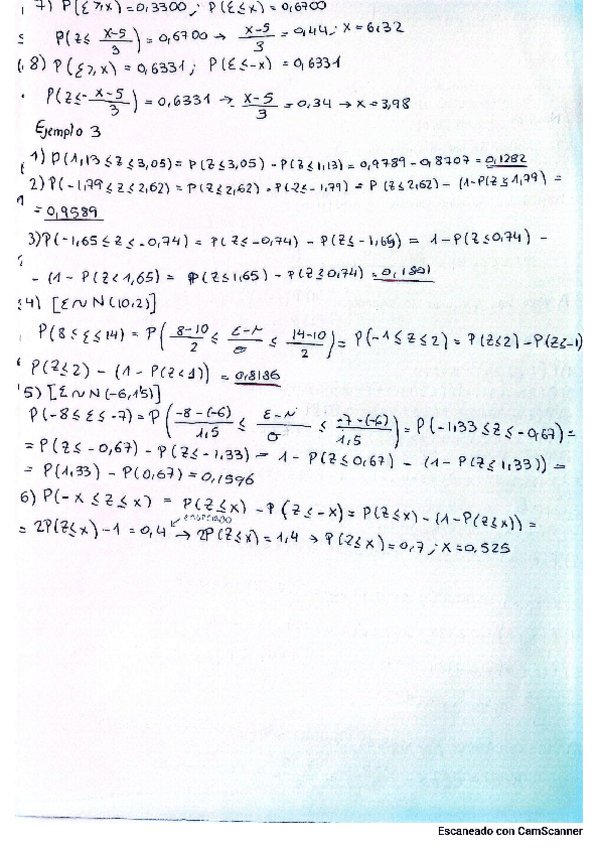 7) P(ξ≥x)=0,3300; P(ξ≤x)=0,6700
P(Z≤ (x-5)/3)=0,6700 → (x-5)/3=0,44; x=6,32
8) P(ξ≥x)=0,6331; P(ξ≤-x)=0,6331
P(Z≤- (x-5)/3)=0,6331 → -(x-5)/3=0,34 → x=3,98
Ejemplo 3
1) P(1,13≤Z≤3,05)=P(Z≤3,05)-P(Z≤1,13)=0,9789-0,8707=0,1282
2) P(-1,79≤Z≤2,62)=P(Z≤2,62)-P(Z≤-1,79)=P(Z≤2,62)-(1-P(Z≤1,79)=
=0,9589
3) P(-1,65≤Z≤-0,74)=P(Z≤-0,74)-P(Z≤-1,65)=1-P(Z≤0,74)-
-(1-P(Z<1,65)=P(Z≤1,65)-P(Z≤0,74)=0,1801
4) [ξ~N(10,2)]
P(8≤ξ≤14)=P((8-10)/2 ≤ (ξ-N)/σ ≤ (14-10)/2)=P(-1≤Z≤2)=P(Z≤2)-P(Z≤-1)
P(Z≤2)-(1-P(Z<1))=0,8186
5) [ξ~N(-6,1'5)]
P(-8≤ξ≤-7)=P((-8-(-6))/1,5 ≤ (ξ-N)/σ ≤ (-7-(-6))/1,5)=P(-1,33≤Z≤-0,67)=
=P(Z≤-0,67)-P(Z≤-1,33)=1-P(Z≤0,67)-(1-P(Z≤1,33))=
=P(1,33)-P(0,67)=0,1596
6) P(-x≤Z≤x)=P(Z≤x)-P(Z≤-x)=P(Z≤x)-(1-P(Z≤x))=
=2P(Z≤x)-1=0,4 → 2P(Z≤x)=1,4 → P(Z≤x)=0,7; x=0,525
Escaneado con CamScanner